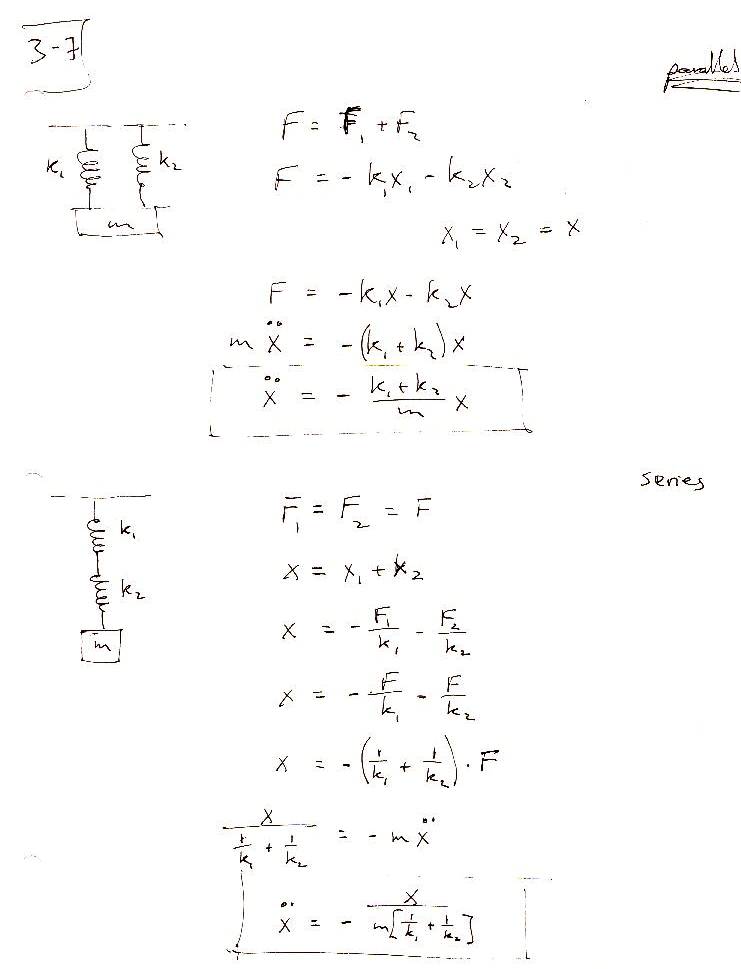 3-7
parallel
F = F₁ + F₂
k₁ k₂
F = - k₁x₁ - k₂x₂
m
x₁ = x₂ = x
F = -k₁x - k₂x
m ẍ = -(k₁ + k₂) x
ẍ = - \frac{k₁ + k₂}{m} x
series
F₁ = F₂ = F
k₁
x = x₁ + x₂
k₂
x = - \frac{F₁}{k₁} - \frac{F₂}{k₂}
m
x = - \frac{F}{k₁} - \frac{F}{k₂}
x = - (\frac{1}{k₁} + \frac{1}{k₂}) · F
\frac{x}{\frac{1}{k₁} + \frac{1}{k₂}} = - m ẍ
ẍ = - \frac{x}{m[\frac{1}{k₁} + \frac{1}{k₂}]}